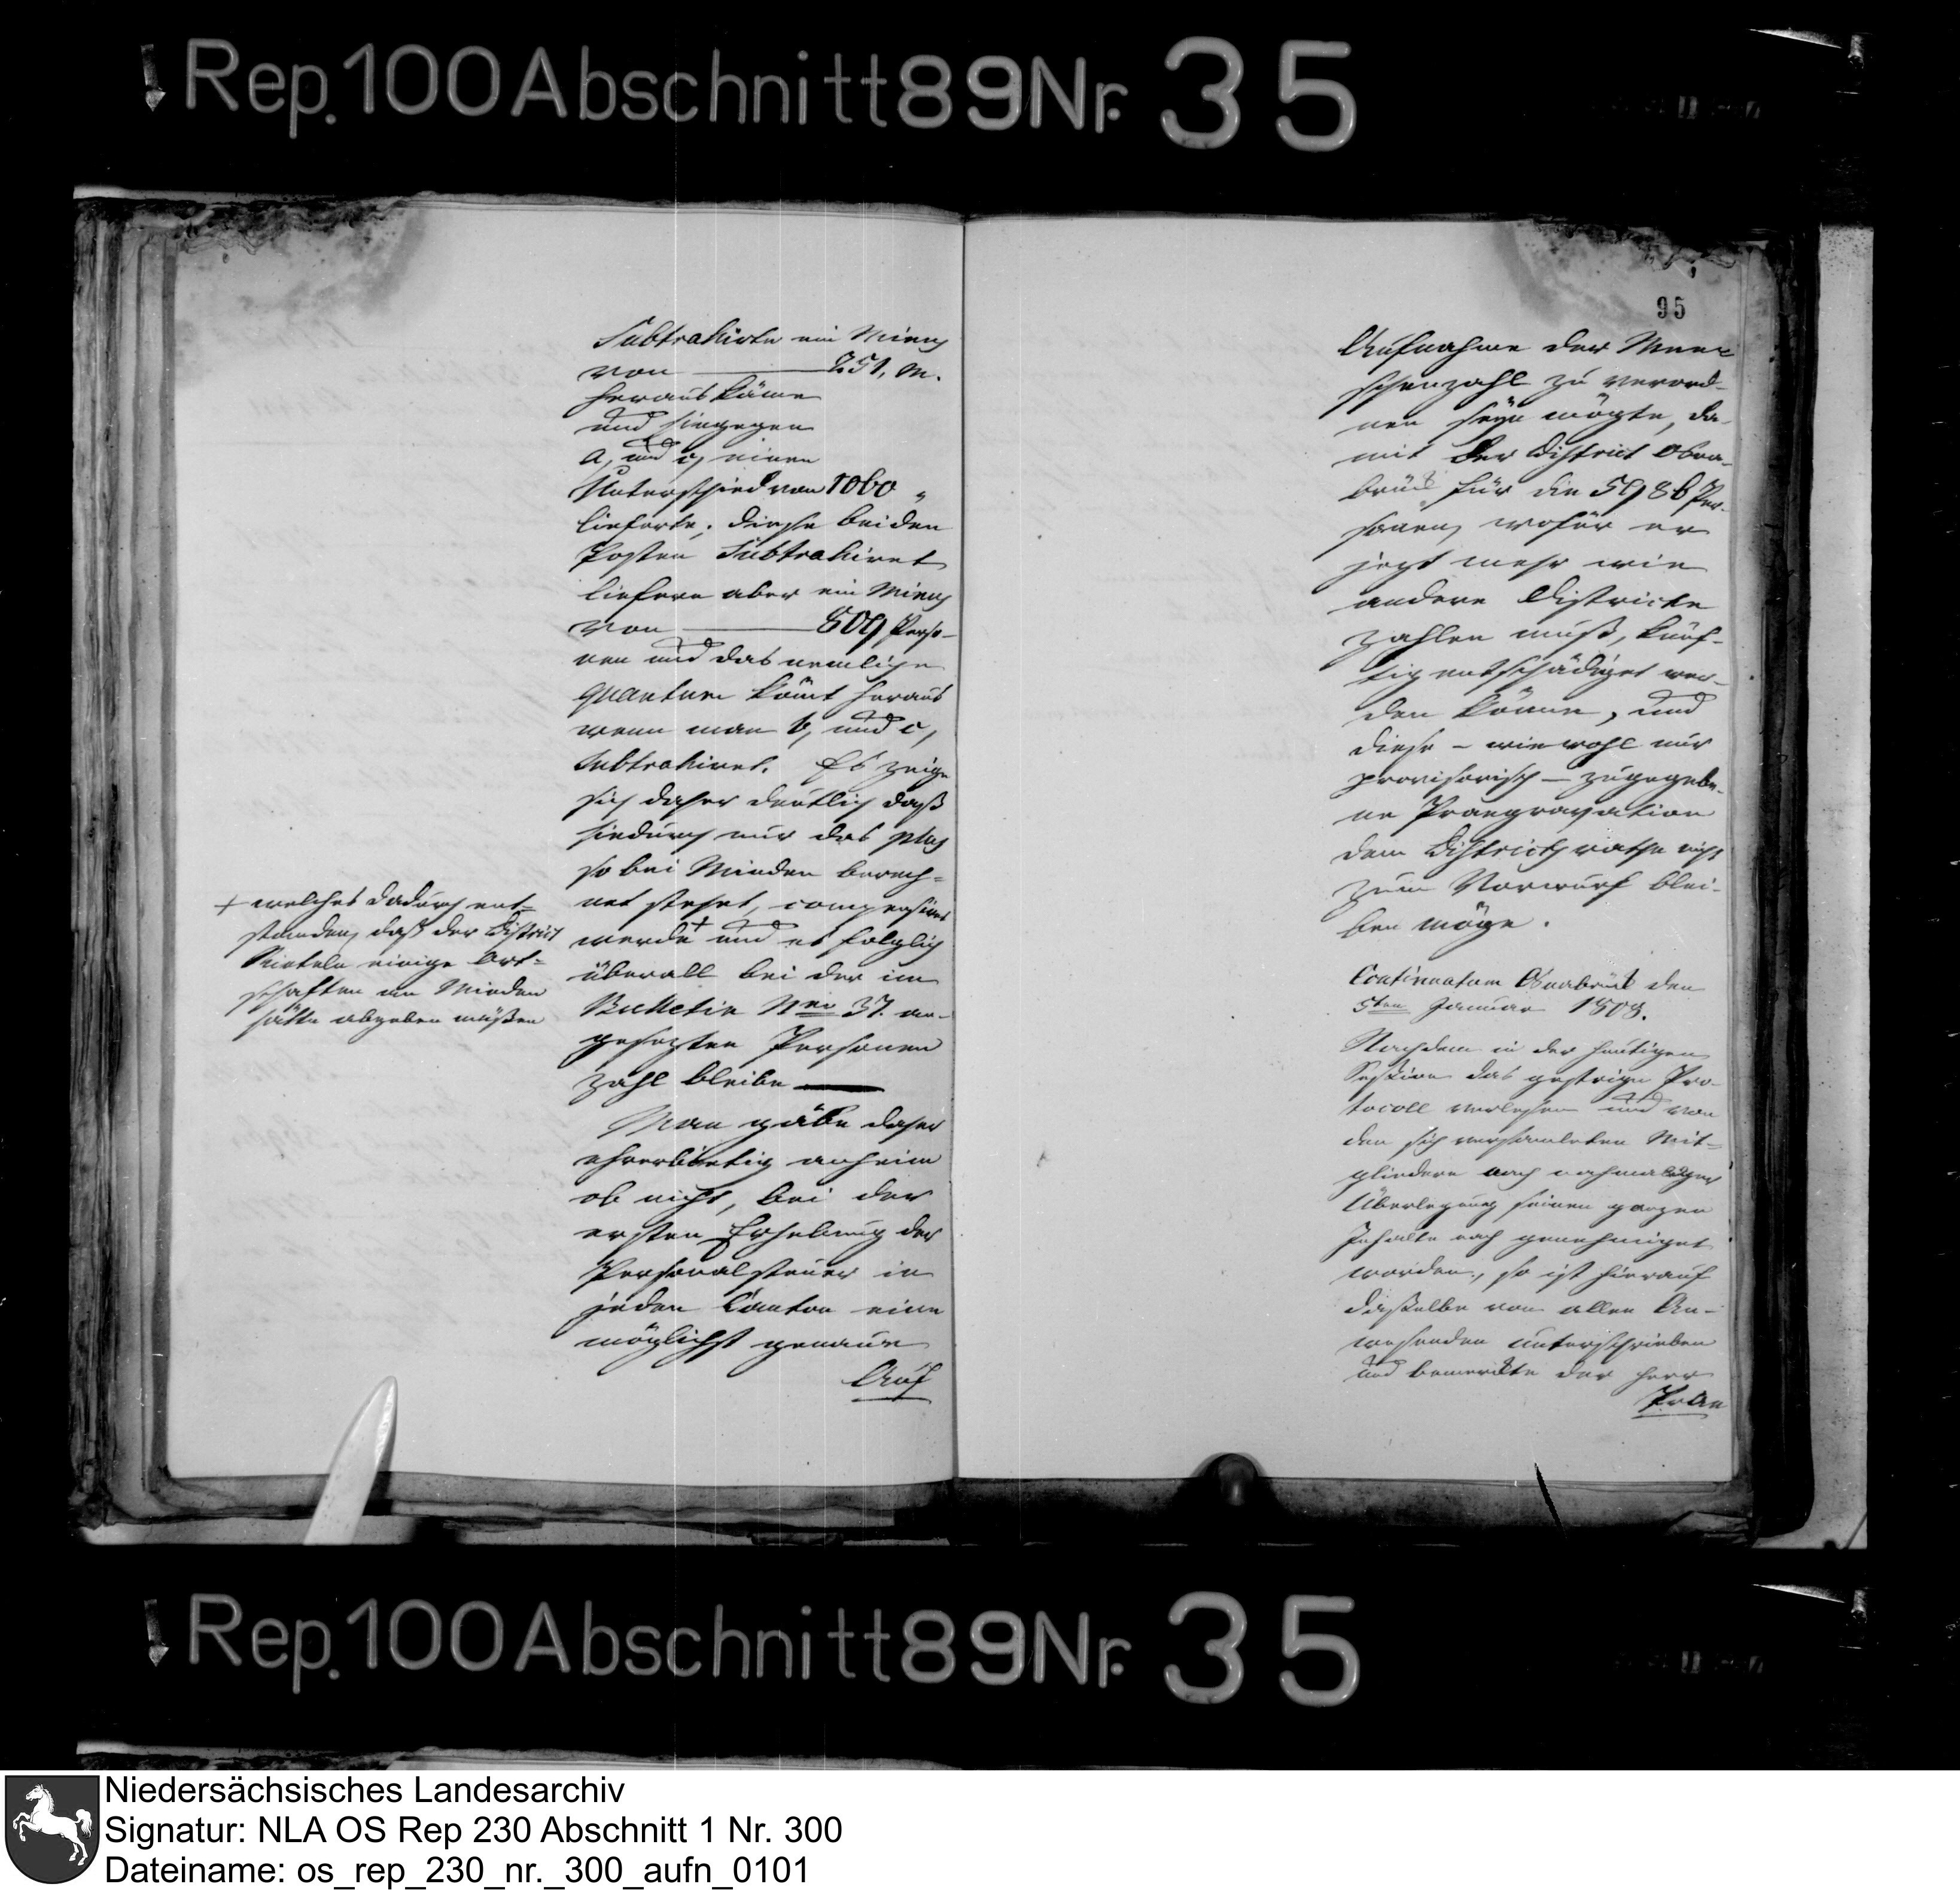 Rep. 100 Abschnitt 89 Nr. 35
Subtrahirte ein Minus
von 251, M.
heraus käme
und hingegen
a, und c, einen
Unterschied von 1060 "
lieferte; diese beiden
Posten Subtrahiret
liefere aber ein Minus
von 809 Perso-
nen und das nemliche
quantum kömt heraus
wenn man b, und c,
subtrahiret. Es zeige
sich daher deutlich daß
hiedurch nur das plus
so bei Minden berech-
net stehet, compensirt
werde + und es folglich
überall bei der im
Bulletin Nro 37. an-
gesezten Personen
zahl bleibe —
Man gäbe daher
ehrerbietig anheim
ob nicht, bei der
ersten Erhebung der
Personalsteuer in
jeden Canton eine
möglichst genaue
Auf
+ welches dadurch ent-
standen, daß der District
Rinteln einige Ort-
schaften an Minden
hätte abgeben müßen
95
Aufnahme der Men-
schenzahl zu verord-
nen seyn mögte, da-
mit der District Osna-
brück für die 5986 Per-
sonen, wofür er
jezt mehr wie
andere Districte
zahlen muß, künf-
tig entschädiget wer-
den könne, und
diese – wiewohl nur
provisorisch – zugegebe-
ne Praegravation
dem Districtsrathe nicht
zum Vorwurf blei-
ben möge.
Continuatum Osnabrück den
5ten Januar 1808.
Nachdem in der heutigen
Session das gestrige Pro-
tocoll verlesen und von
den sich versamleten Mit-
gliedern nach nochmaliger
Überlegung seinen ganzen
Inhalte nach genehmiget
worden, so ist hierauf
dasselbe von allen An-
wesenden unterschrieben
und bemerckte der Herr
Prae
Rep. 100 Abschnitt 89 Nr. 35
Niedersächsisches Landesarchiv
Signatur: NLA OS Rep 230 Abschnitt 1 Nr. 300
Dateiname: os_rep_230_nr._300_aufn_0101